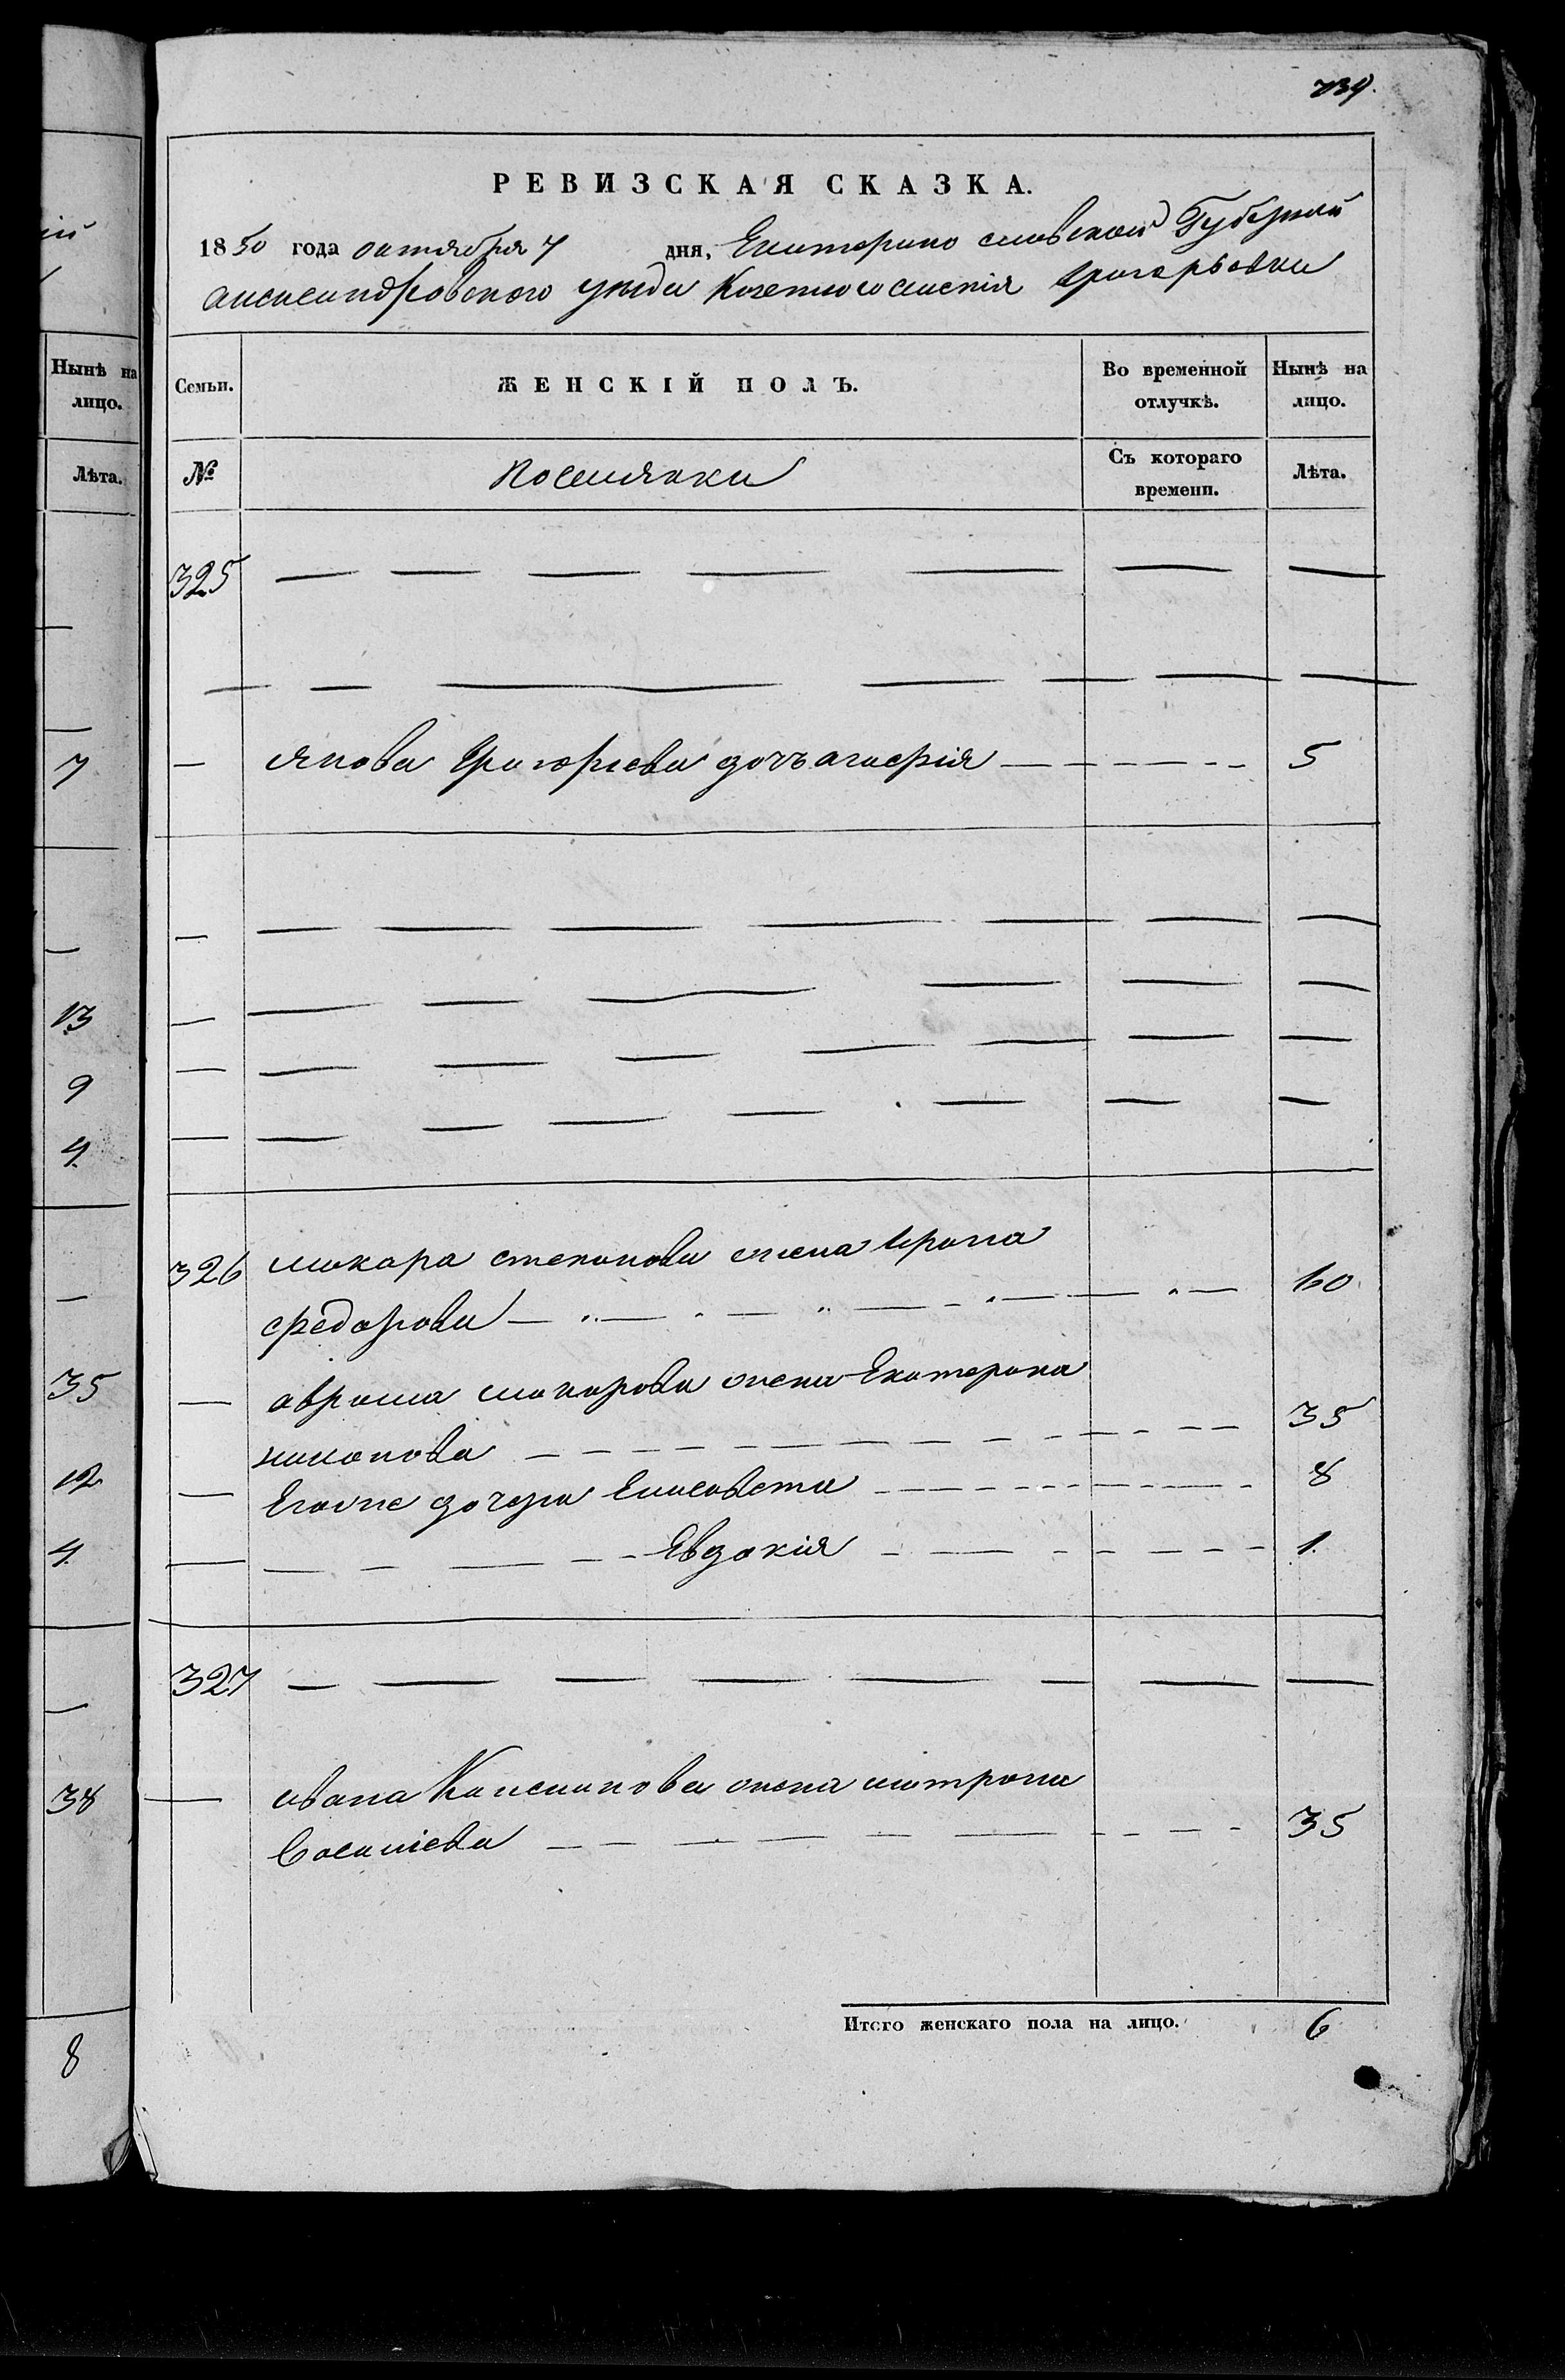 739.
РЕВИЗСКАЯ СКАЗКА.
1850 года октября 7 дня, Екатерино славской Губернии
александровского уезда Казенного селения Григорьевки
Семьи.
ЖЕНСКІЙ ПОЛЪ.
Во временной отлучкѣ.
Нынѣ на лицо.
№
Поселянки
Съ котораго времени.
Лѣта.
325
— якова Григорьева дочь 5
326 макара степанова жена
федорова 60
— аврама макарова жена Екатерина
35
— Егоже дочери Елисавета 8
— Евдокія 1.
327
— ивана жена матрона
35
Итого женскаго пола на лицо. 6
ій
Нынѣ на лицо.
Лѣта.
7
13
9
4.
35
12
4.
38
8